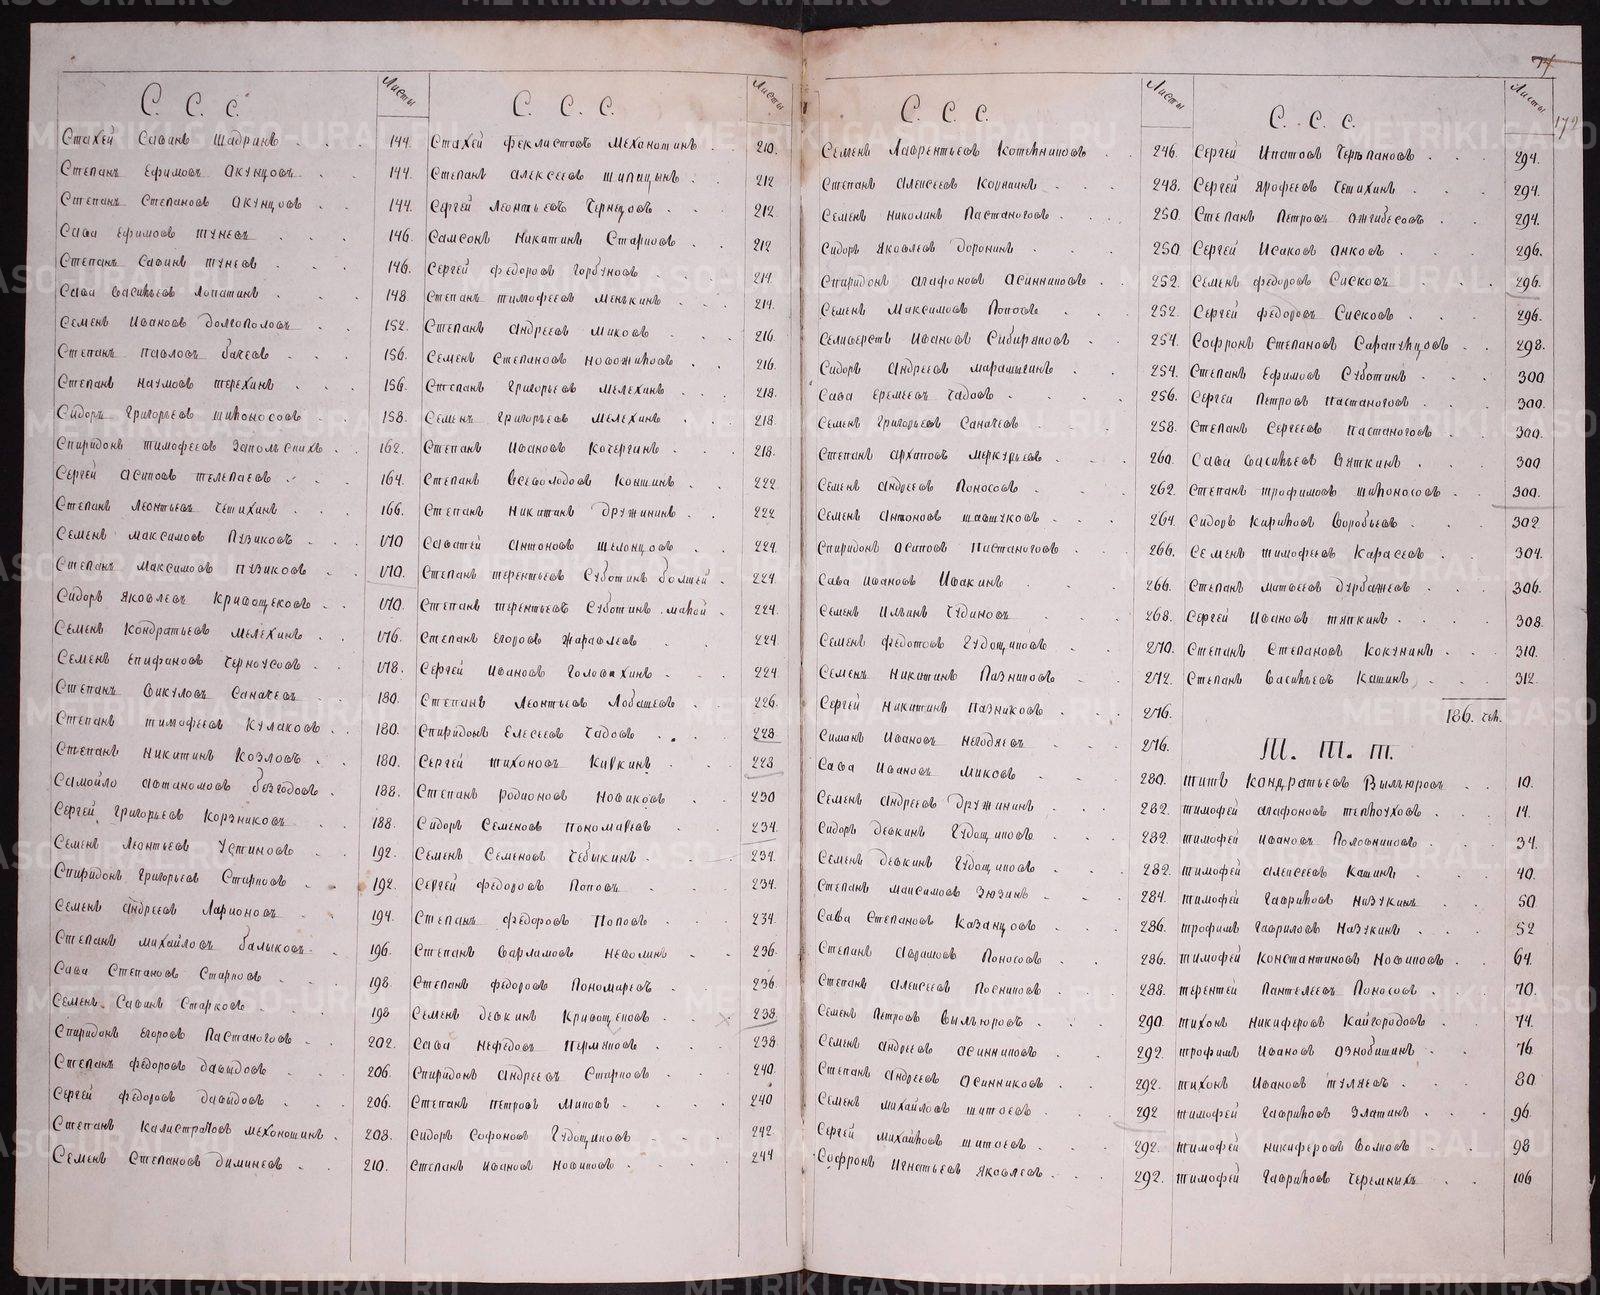 С. С. С.
Листы
Стахей Савинъ Шадринъ 144.
Степанъ Ефимовъ Окунцовъ 144.
Степанъ Степановъ Окунцовъ 144.
Сава Ефимовъ Туневъ 146.
Степанъ Савинъ Туневъ 146.
Сава Васильевъ Лопатинъ 148
Семенъ Ивановъ Долгополовъ 152.
Степанъ Павловъ 156.
Степанъ Наумовъ Терехинъ 156.
Сидоръ Григорьевъ Шилоносовъ 158.
Спиридонъ Тимофеевъ Запольскихъ 162.
Сергей Осиповъ Телепаевъ 164.
Степанъ Леонтьевъ Чешихинъ 166.
Семенъ Максимовъ Пузиковъ 170
Степанъ Максимовъ Пузиковъ 170.
Сидоръ Яковлевъ Кривощековъ 170.
Семенъ Кондратьевъ Мелехинъ 176.
Семенъ Епифановъ Черноусовъ 178.
Степанъ Викуловъ Саначевъ 180.
Степанъ Тимофеевъ Кулаковъ 180.
Степанъ Никитинъ Козловъ 180.
Самойло Автаномовъ 188.
Сергей Григорьевъ Корзниковъ 188.
Семенъ Леонтьевъ Устиновъ 192.
Спиридонъ Григорьевъ Старковъ 192.
Семенъ Андреевъ Ларионовъ 194.
Степанъ Михайловъ Балыковъ 196.
Сава Степановъ Старковъ 198.
Семенъ Савинъ Старковъ 198
Спиридонъ Егоровъ Пастаноговъ 202.
Степанъ Федоровъ Давыдовъ 206.
Сергей Федоровъ Давыдовъ 206.
Степанъ Калистратовъ Мехоношинъ 208.
Семенъ Степановъ Диминевъ 210.
С. С. С.
Листы
Стахей Феклистовъ Мехоношинъ 210.
Степанъ Алексеевъ Шипицынъ 212
Сергей Леонтьевъ Чернецовъ 212
Самсонъ Никитинъ Старковъ 212
Сергей Федоровъ Горбуновъ 214.
Степанъ Тимофеевъ Менькинъ 214.
Степанъ Андреевъ Миковъ 216
Семенъ Степановъ Новожиловъ 216
Степанъ Григорьевъ Мелехинъ 218.
Семенъ Григорьевъ Мелехинъ 218
Степанъ Ивановъ Кочергинъ 218.
Степанъ Всеволодовъ Коншинъ 222
Степанъ Никитинъ Дружининъ 222
Саватей Антоновъ Шелонцовъ 224.
Степанъ Терентьевъ Суботинъ Болшей 224.
Степанъ Терентьевъ Суботинъ малой 224.
Степанъ Егоровъ Жаравлевъ 224
Сергей Ивановъ Головихинъ 224
Степанъ Леонтьевъ Лобашевъ 226.
Спиридонъ Елесеевъ Чадовъ 228
Сергей Тихоновъ Киркинъ 228
Степанъ Родионовъ Новиковъ 230
Сидоръ Семеновъ Пономаревъ 234.
Семенъ Семеновъ Чебыкинъ 234.
Сергей Федоровъ Поповъ 234.
Степанъ Федоровъ Поповъ 234
Степанъ Варламовъ Неволинъ 236.
Степанъ Федоровъ Пономаревъ 236
Семенъ Девкинъ Кривощековъ 238.
Сава Нефедовъ Пермяковъ 238
Спиридонъ Андреевъ Старковъ 240.
Степанъ Петровъ Миковъ 240
Сидоръ Софоновъ Гудощиковъ 242
Степанъ Ивановъ Новиковъ 244
С. С. С.
Листы
Семенъ Лаврентьевъ Котельниковъ 246.
Степанъ Алексеевъ Корякинъ 248.
Семенъ Николинъ Пастаноговъ 250.
Сидоръ Яковлевъ Доронинъ 250
Спиридонъ Агафоновъ Осинниковъ 252.
Семенъ Максимовъ Поповъ 252
Селиверстъ Ивановъ Сибиряковъ 254
Сидоръ Андреевъ Марашыгинъ 254.
Сава Еремеевъ Чадовъ 256.
Семенъ Григорьевъ Саначевъ 258.
Степанъ Архиповъ Меркурьевъ 260.
Семенъ Андреевъ Поносовъ 262
Семенъ Антоновъ Шавшуковъ 264.
Спиридонъ Осиповъ Пастаноговъ 266.
Сава Ивановъ Ивакинъ 266.
Семенъ Ильинъ Чудиновъ 268.
Семенъ Федотовъ Гудощиковъ 270.
Семенъ Никитинъ Пазниковъ 272.
Сергей Никитинъ Пазниковъ 276.
Симанъ Ивановъ Негодяевъ 276.
Сава Ивановъ Миковъ 280.
Семенъ Андреевъ Дружининъ 282.
Сидоръ Девкинъ Гудощиковъ 282.
Семенъ Девкинъ Гудощиковъ 282.
Степанъ Максимовъ Зюзинъ 284.
Сава Степановъ Казанцовъ 286.
Степанъ Аврамовъ Поносовъ 286.
Степанъ Алексеевъ Посниковъ 288.
Семенъ Петровъ Вылъюровъ 290.
Семенъ Андреевъ Осинниковъ 292.
Степанъ Андреевъ Осинниковъ 292.
Семенъ Михайловъ Шитоевъ 292
Сергей Михайловъ Шитоевъ 292.
Софронъ Игнатьевъ Яковлевъ 292.
74
172
С. С. С.
Листы
Сергей Ипатовъ Черепановъ 294.
Сергей Ярофеевъ Чешихинъ 294.
Степанъ Петровъ Ожгибесовъ 294.
Сергей Исаковъ Анковъ 296.
Семенъ Федоровъ Сисковъ 296.
Сергей Федоровъ Сисковъ 296.
Софронъ Степановъ Сарапульцовъ 298.
Степанъ Ефимовъ Суботинъ 300
Сергей Петровъ Пастаноговъ 300.
Степанъ Сергеевъ Пастаноговъ 300.
Сава Васильевъ Вяткинъ 300
Степанъ Трофимовъ Шилоносовъ 300.
Сидоръ Кириловъ Воробьевъ 302
Семенъ Тимофеевъ Карасевъ 304.
Степанъ Матвеевъ Дурбажевъ 306.
Сергей Ивановъ Тяпкинъ 308.
Степанъ Степановъ Кокунинъ 310.
Степанъ Васильевъ Кашинъ 312.
186. чел.
Т. Т. Т.
Титъ Кондратьевъ Вылъюровъ 10.
Тимофей Агафоновъ Теплоуховъ 14.
Тимофей Ивановъ Половниковъ 34.
Тимофей Алексеевъ Кашинъ 40.
Тимофей Гавриловъ Назукинъ 50
Трофимъ Гавриловъ Назукинъ 52
Тимофей Константиновъ Новиковъ 64.
Терентей Пантелеевъ Поносовъ 70.
Тихонъ Никифоровъ Кайгородовъ 74.
Трофимъ Ивановъ Ознобишинъ 76
Тихонъ Ивановъ Туляевъ 80
Тимофей Гавриловъ Златинъ 96.
Тимофей Никифоровъ Волковъ 98
Тимофей Гавриловъ Черемныхъ 106